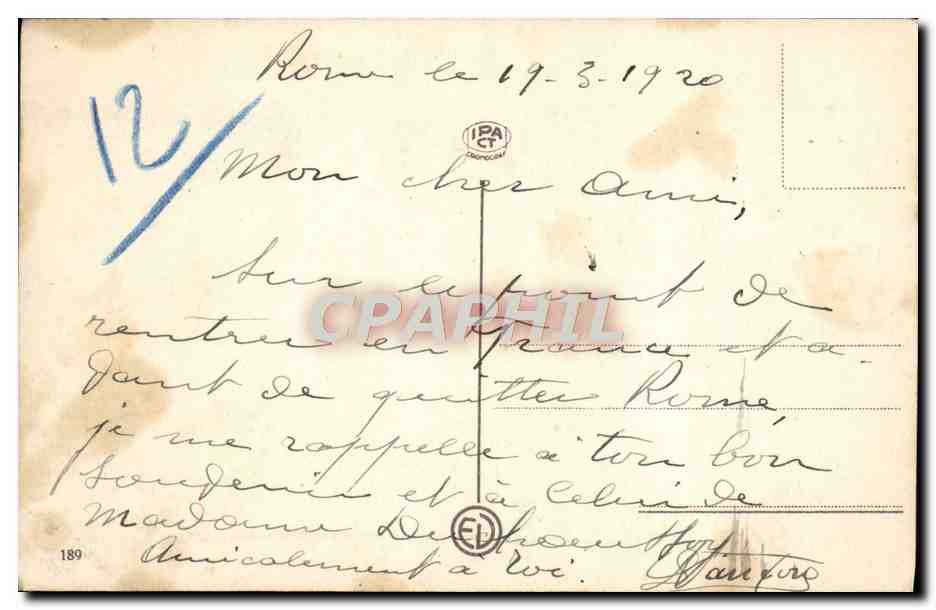 Rome le 19-3-1920
12/
IPA
CT
Mon cher ami,
Sur le point de
CPAPHIL
rentrer en France et a-
vant de quitter Rome,
je me rappelle à ton bon
souvenir et à celui de
Madame
ED
189
Amicalement à toi.